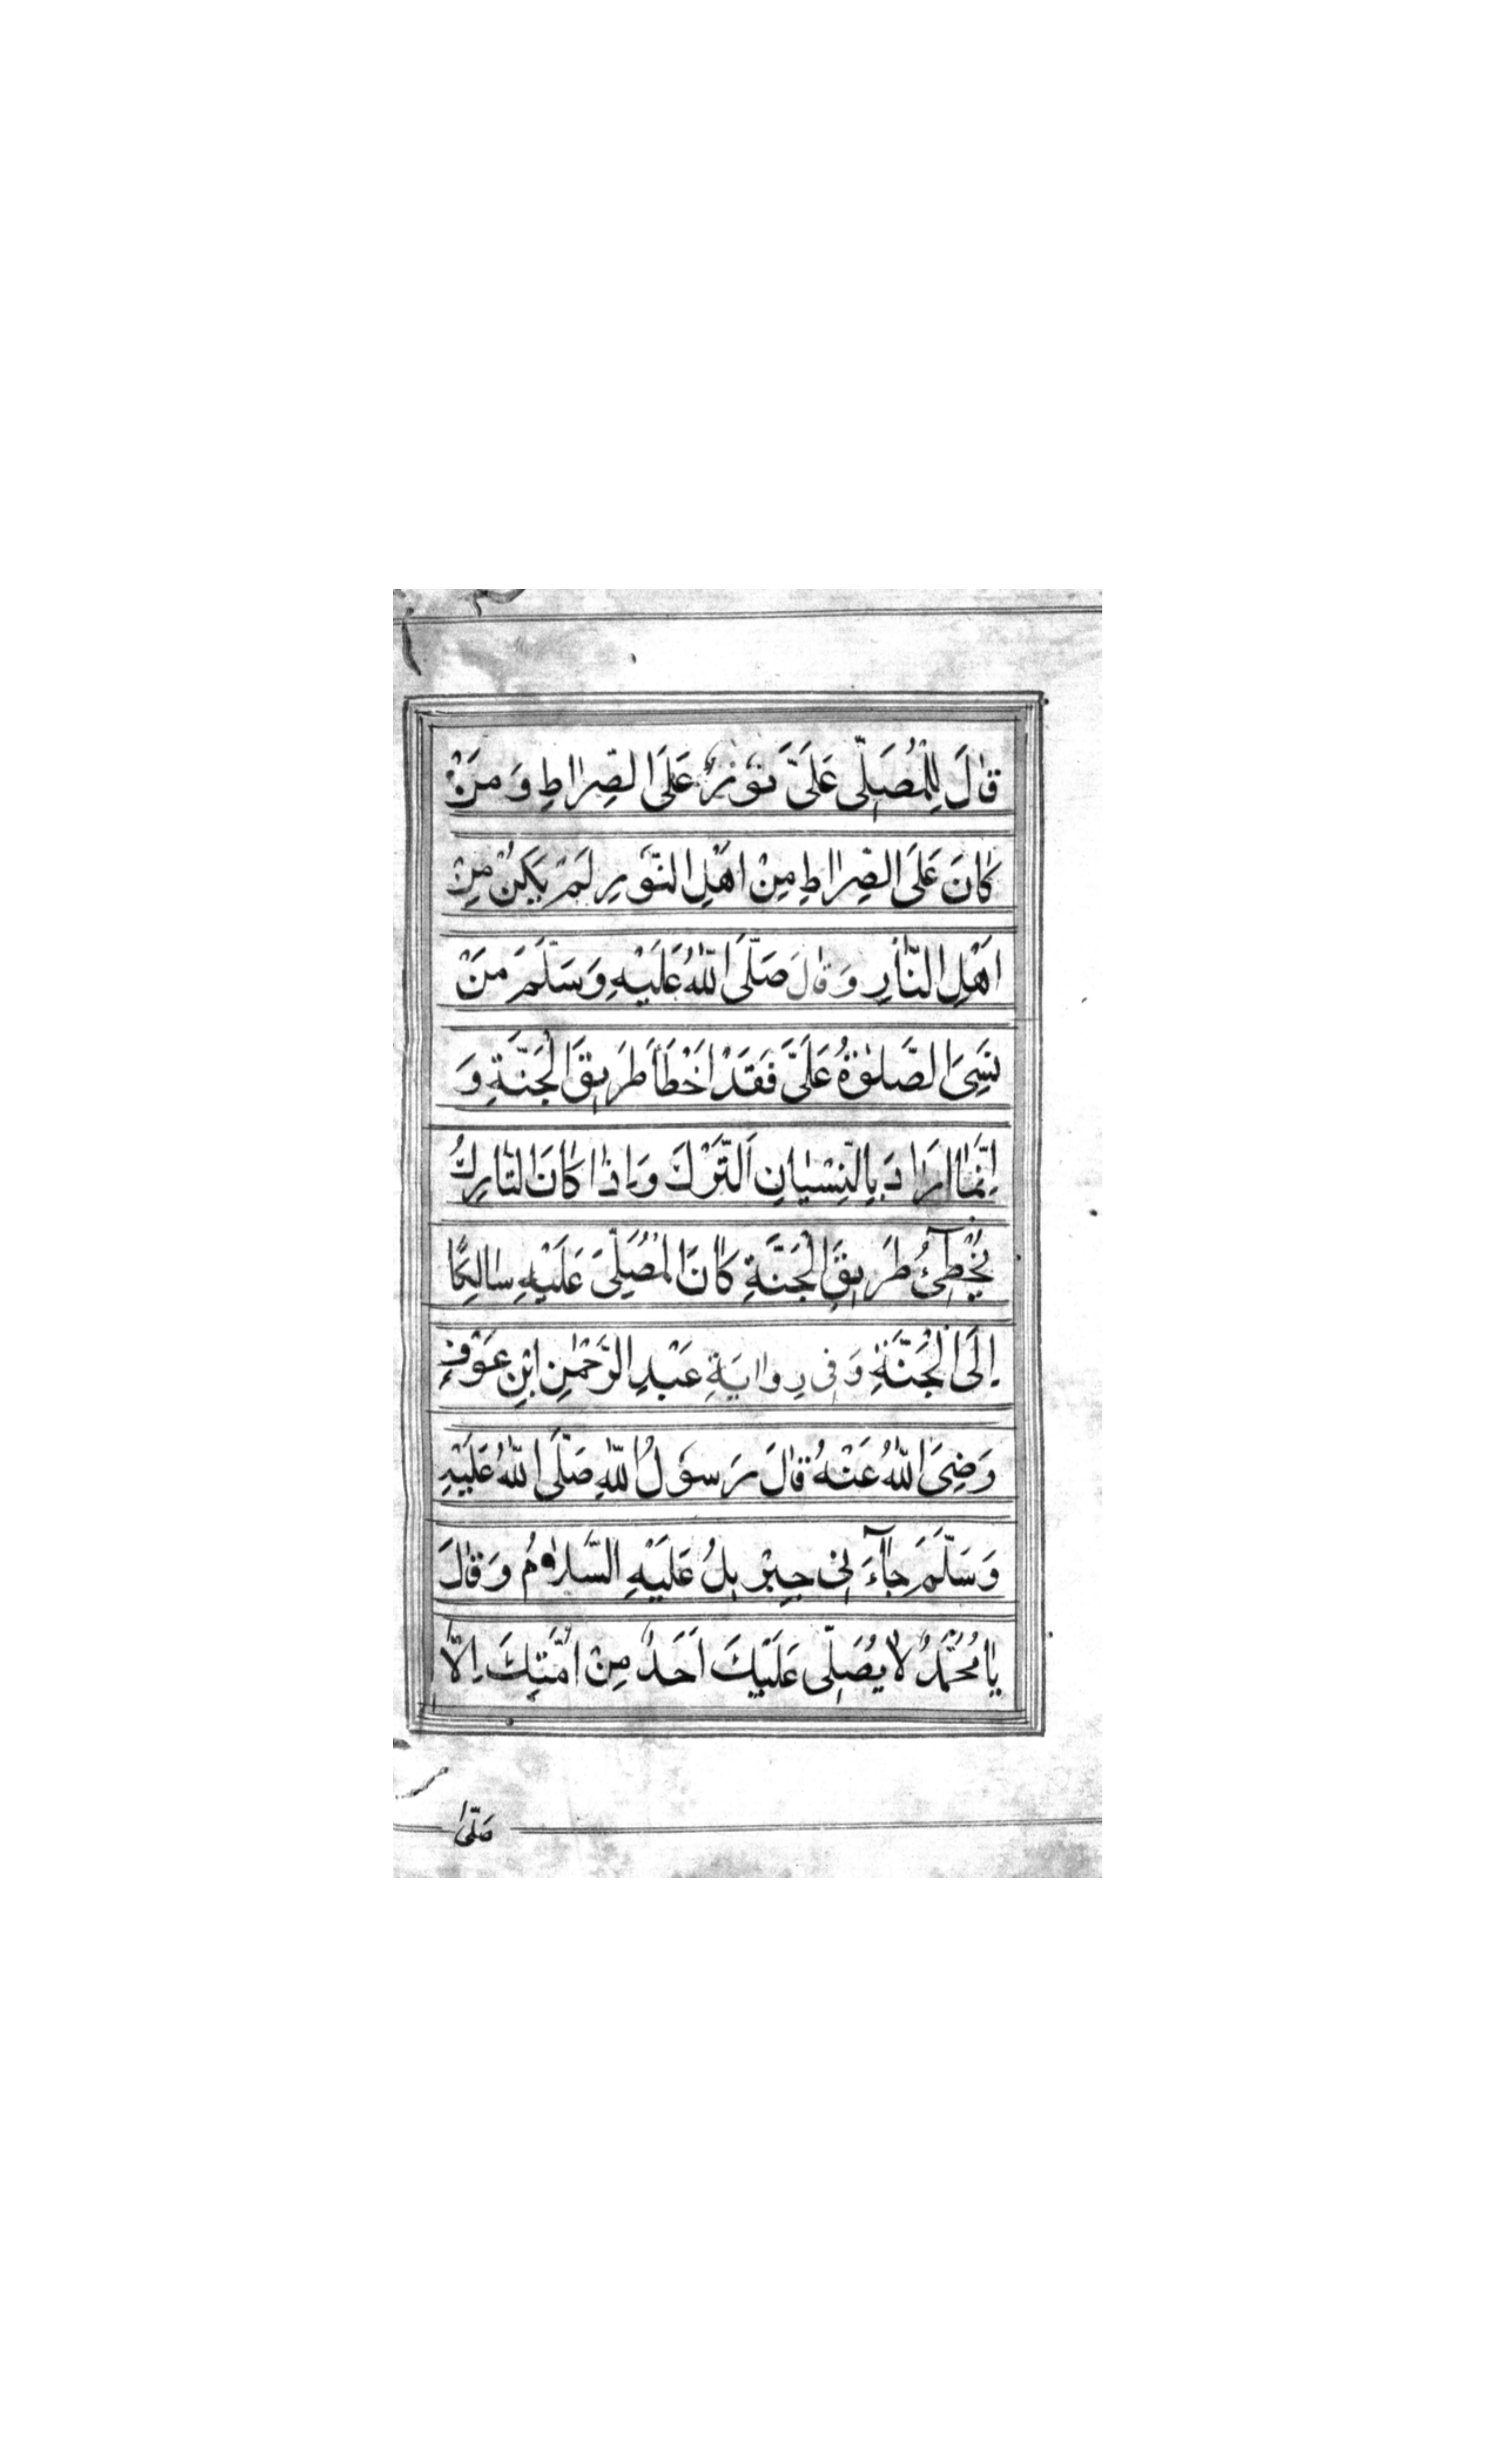 قَالَ لِلْمُصَلِّى عَلَىَّ نُوْرٌ عَلَى الصِّرَاطِ وَمَنْ
كَانَ عَلَى الصِّرَاطِ مِنْ اَهْلِ النُّوْرِ لَمْ يَكُنْ مِنْ
اَهْلِ النَّارِ وَقَالَ صَلَّى اللّٰهُ عَلَيْهِ وَسَلَّمَ مَنْ
نَسِىَ الصَّلٰوةَ عَلَىَّ فَقَدْ اَخْطَأَ طَرِيقَ الْجَنَّةِ وَ
اِنَّمَا اَرَادَ بِالنِّسْيَانِ اَلتَّرْكَ وَاِذَا كَانَ التَّارِكُ
يُخْطِئُ طَرِيقَ الْجَنَّةِ كَانَ الْمُصَلِّىَ عَلَيْهِ سَالِكًا
اِلَى الْجَنَّةِ وَفِى رِوَايَةِ عَبْدِ الرَّحْمٰنِ ابْنِ عَوْفٍ
رَضِىَ اللّٰهُ عَنْهُ قَالَ رَسُوْلُ اللّٰهِ صَلَّى اللّٰهُ عَلَيْهِ
وَسَلَّمَ جَآءَنِى جِبْرِيلُ عَلَيْهِ السَّلَامُ وَقَالَ
يَا مُحَمَّدُ لَا يُصَلِّى عَلَيْكَ اَحَدٌ مِنْ اُمَّتِكَ اِلَّا
صَلّٰى